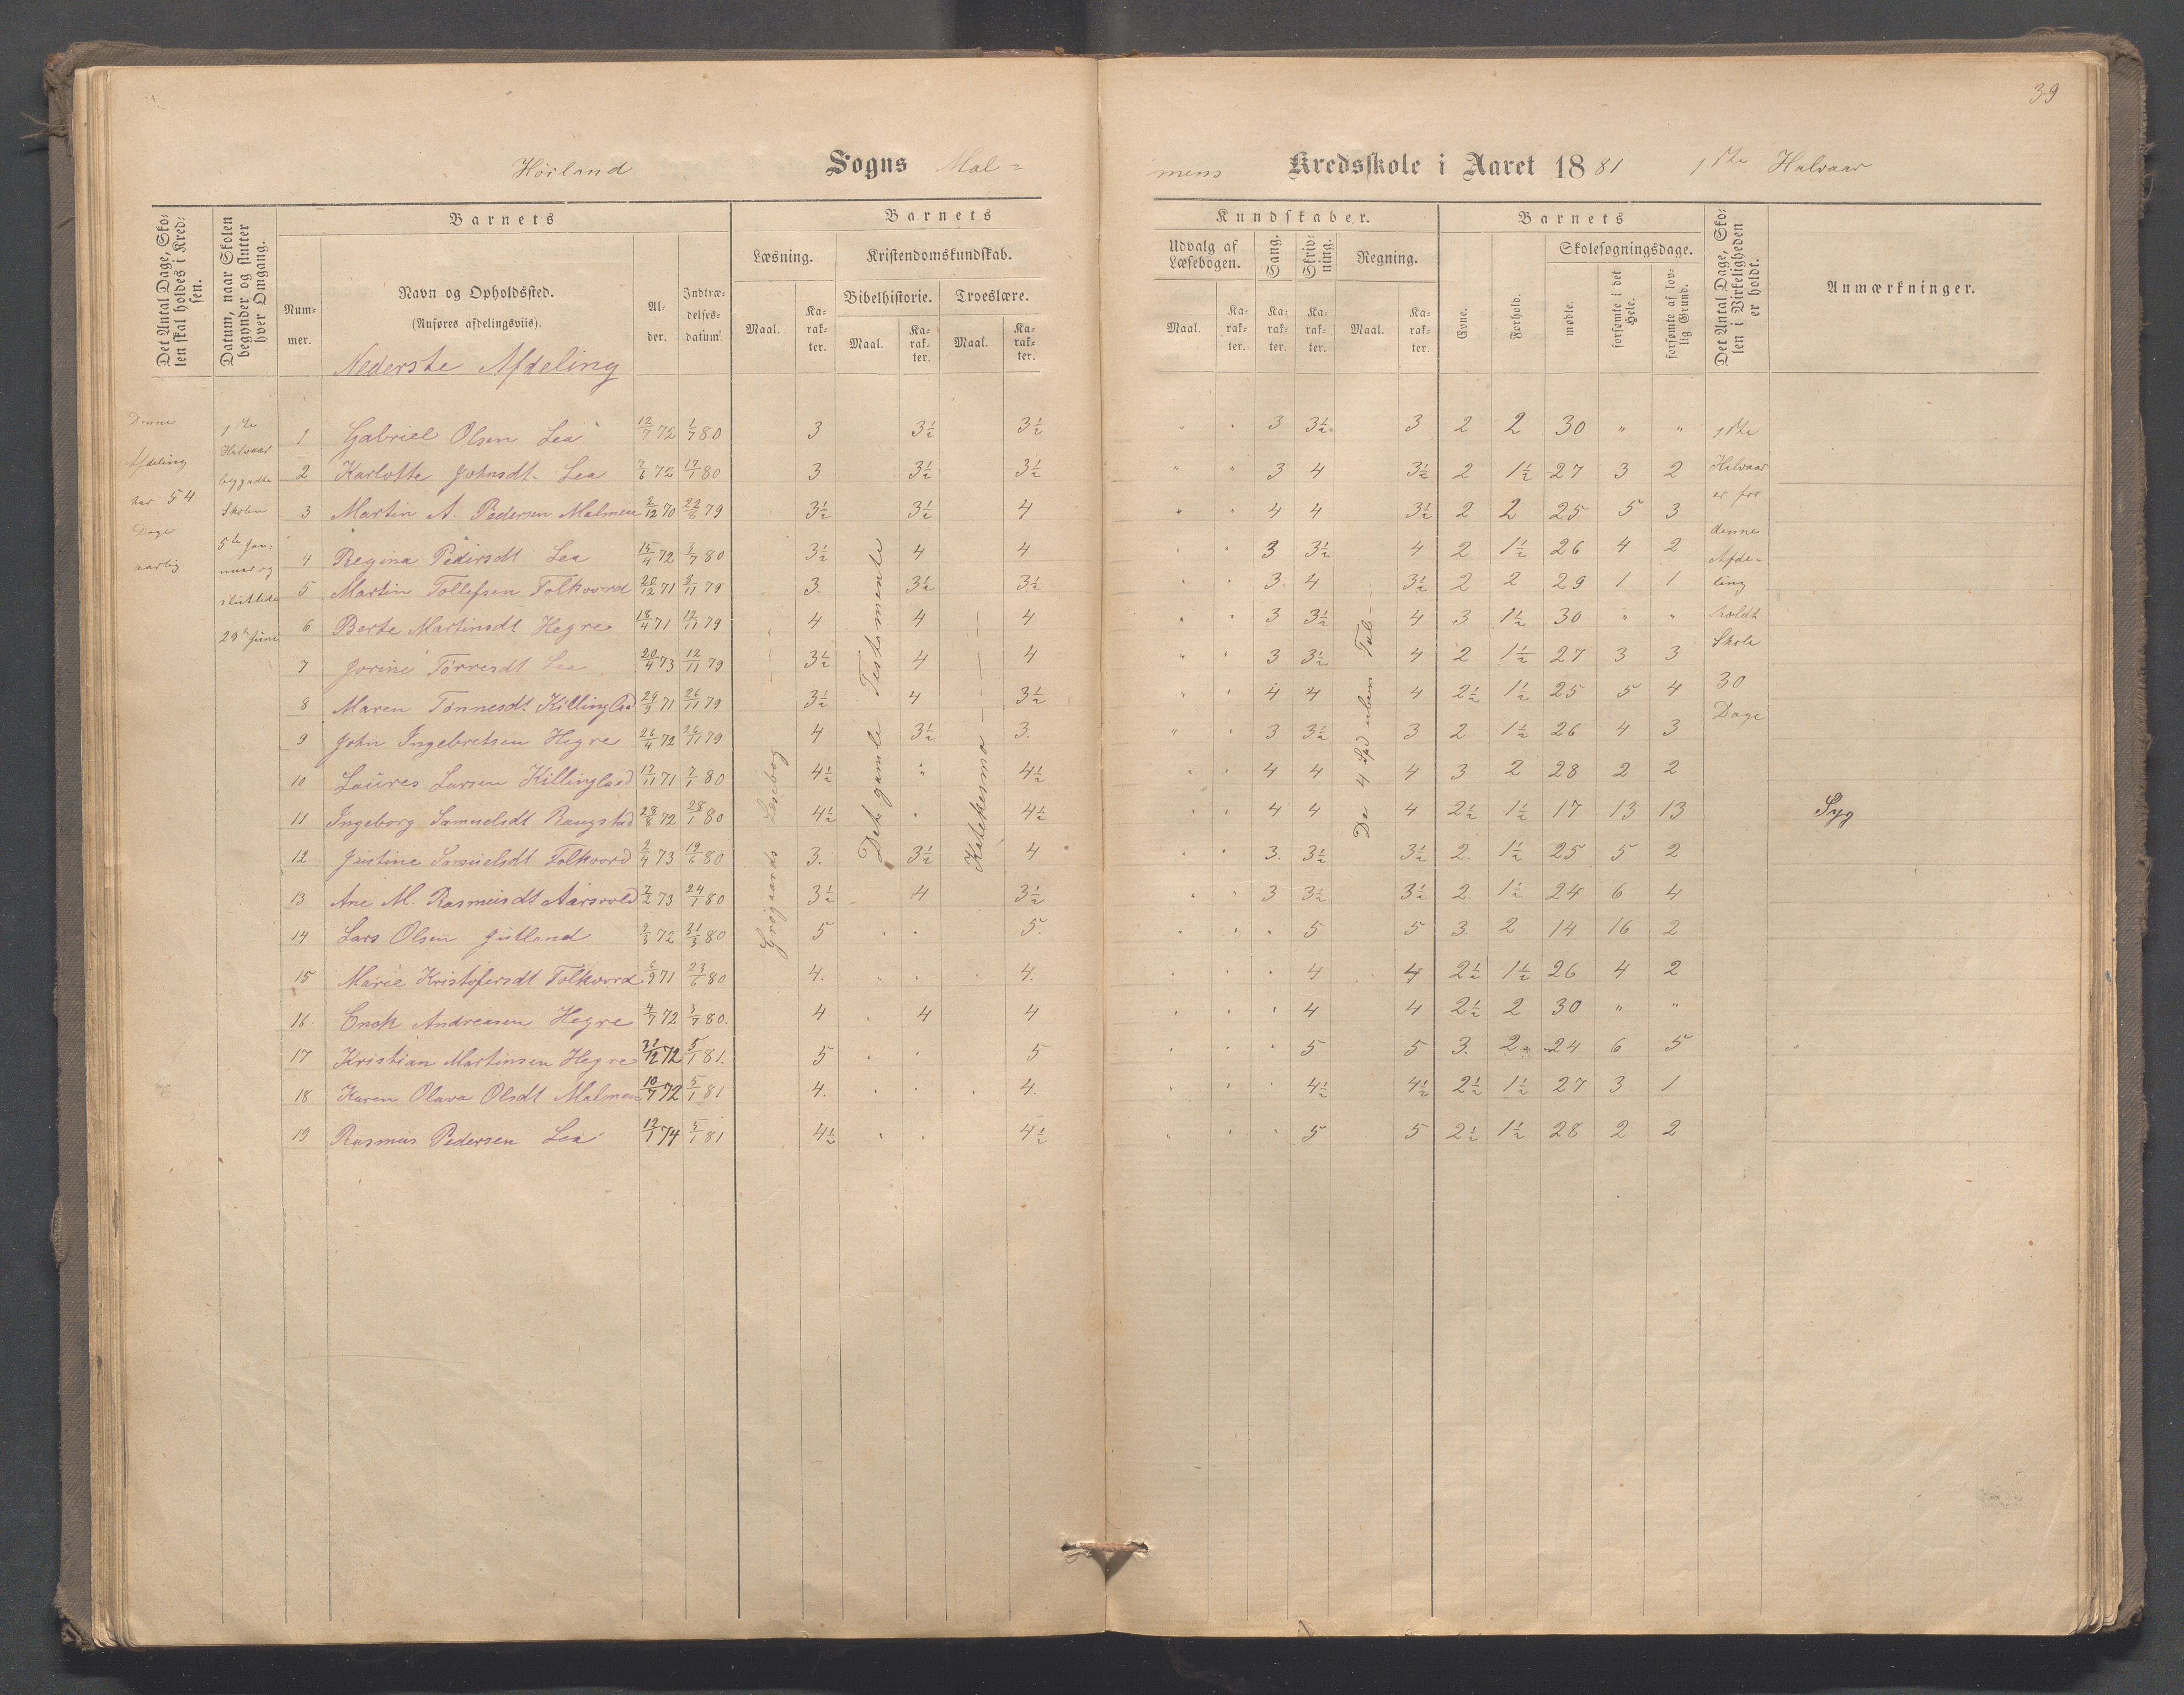 39
Høiland Sogns Mal=
mens Kredsskole i Aaret 1881 1ste Halvaar
Det Antal Dage, Skolen skal holdes i Kredsen.
Datum, naar Skolen begynder og slutter hver Omgang.
Barnets
Nummer.
Navn og Opholdssted.
(Anføres afdelingsviis).
Nederste Afdeling
Alder.
Indtrædelsesdatum.
Barnets
Læsning.
Maal.
Karakter.
Kristendomskundskab.
Bibelhistorie.
Maal.
Karakter.
Troeslære.
Maal.
Karakter.
Kundskaber.
Udvalg af Læsebogen.
Maal.
Karakter.
Sang.
Karakter.
Skrivning.
Karakter.
Regning.
Maal.
Karakter.
Barnets
Evne.
Forhold.
Skolesøgningsdage.
mødte.
forsømte i det Hele.
forsømte af lovlig Grund.
Det Antal Dage, Skolen i Virkeligheden er holdt.
Anmærkninger.
Denne
Afdeling
har 54
Dage
aarlig
1ste
Halvaar
begyndte
Skolen
5te Jan:
uuar og
sluttede
29de Juni
Læsebog
Det gamle Testamente
Katekesme
De 4 Spd ubens Tal
1ste
Halvaar
er for
denne
Afde-
ling
holdt
Skole
30
Dage
1 Gabriel Olsen Lea 12/7 72 1/7 80 3 3½ 3½ " " 3 3½ 3 2 2 30 " "
2 Karlotte Johnsdt. Lea 7/6 72 17/1 80 3 3½ 3½ " " 3 4 3½ 2 1½ 27 3 2
3 Martin A. Pedersen Malmen 2/12 70 22/8 79 3½ 3½ 4 " " 4 4 3½ 2 2 25 5 3
4 Regina Pedersdt Lea 15/4 72 2/7 80 3½ 4 4 " " 3 3½ 4 2 1½ 26 4 2
5 Martin Tollefsen Folkvord 20/12 71 8/11 79 3 3½ 3½ " " 3 4 3½ 2 2 29 1 1
6 Berte Martinsdt Hegre 18/4 71 12/11 79 4 4 4 " " 3 3½ 4 3 1½ 30 " "
7 Jorine Tørresdt Lea 20/4 73 12/11 79 3½ 4 4 " " 3 3½ 4 2 1½ 27 3 3
8 Maren Tønnesdt Killinglad 29/3 71 26/11 79 3½ 4 3½ " " 4 4 4 2½ 1½ 25 5 4
9 John Ingebretsen Hegre 26/4 72 26/11 79 4 3½ 3 " " 3 3½ 3 2 1½ 26 4 3
10 Laures Larsen Killinglad 17/11 71 7/1 80 4½ " 4½ " " 4 4 4 3 2 28 2 2
11 Ingeborg Samuelsdt Raugstad 28/8 72 28/1 80 4½ " 4½ " " 4 4 4 2½ 1½ 17 13 13 Syg
12 Justine Samuelsdt Folkvord 2/4 73 19/6 80 3 3½ 4 " " 3 3½ 3½ 2 1½ 25 5 2
13 Ane M. Rasmusdt Aarsvold 7/2 73 24/1 80 3½ 4 3½ " " 3 3½ 3½ 2 1½ 24 6 4
14 Lars Olsen Jutland 2/3 72 31/3 80 5 " " 5 " " " 5 5 3 2 14 16 2
15 Marie Kristofersdt Folkvord 6/9 71 23/6 80 4 " " 4 " " " 4 4 2½ 1½ 26 4 2
16 Enok Andreasen Hegre 4/7 72 3/7 80 4 " 4 4 " " " 4 4 2½ 2 30 " "
17 Kristian Martinsen Hegre 31/12 72 5/1 81 5 " " 5 " " " 5 5 3 2 24 6 5
18 Karen Olava Olsdt Malmen 10/7 72 5/1 81 4 " " 4 " " " 4½ 4½ 2½ 1½ 27 3 1
19 Rasmus Pedersen Lea 12/1 74 5/1 81 4½ " " 4½ " " " 5 5 2½ 1½ 28 2 2